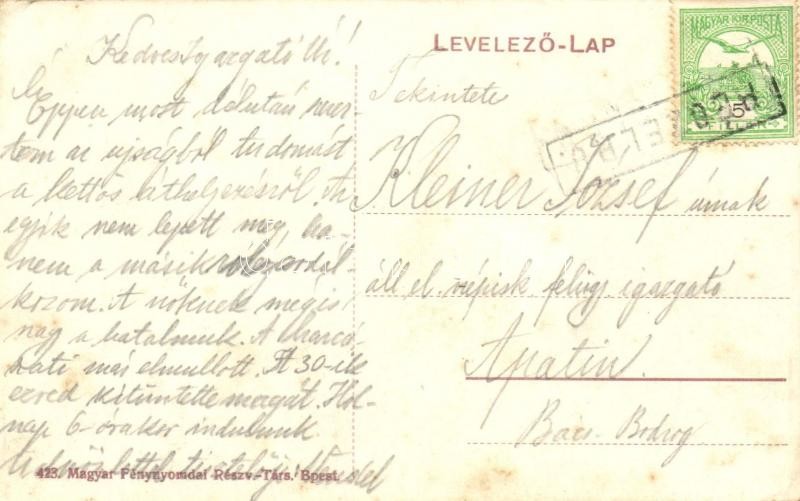 Kedves Igazgató Úr!
Éppen most délután szer-
tem az ujságból tudomást
a kettős áthelyezésről. Az
egyik nem lepett meg, ha-
nem a másikról
kozom. A nőknek mégis
nagy a hatalmuk. A harcá-
hati más elmullott. A 30-ik
ezred kitüntette magát. Hol-
nap 6-órakor indulunk
LEVELEZŐ-LAP
MAGYAR KIR. POSTA
5
FILLÉR
Tekintetes
Kleiner József úrnak
áll el. népisk felügy. igazgató
Apatin
Bács-Bodrog
423. Magyar Fénynyomdai Részv.-Társ. Bpest.